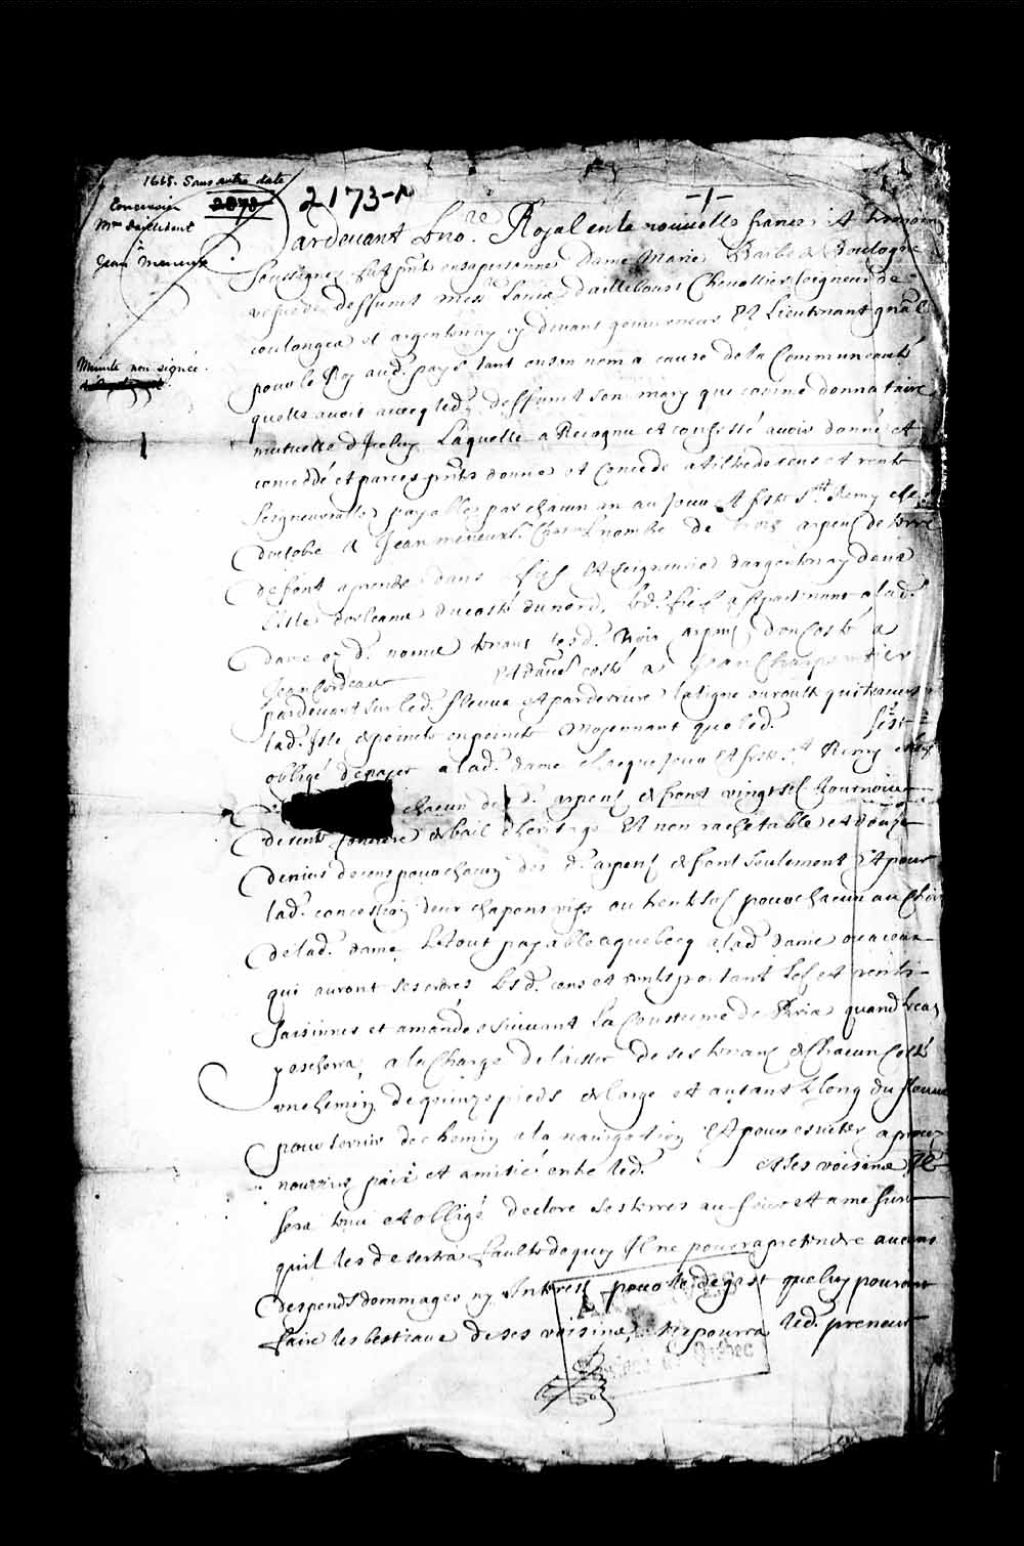 1665. Sans autre date
2070
Concession
Mme Dailleboust
à
Jean Meneux
Minute non signée.
2173-A
-1-
Pardevant Le nore. Royal en la nouvelle france Et tesmoins
soussignez fut pnte en sa personne Dame Marie Barbe de Boulogne
vefve de deffunt Messre Louis Dailleboust Chevallier seigneur de
coulonges et argentenay cy devant gouverneur Et Lieutenant gnãl
pour le Roy aud. pays tant en son nom a cause de la Communauté
quelle avoit avecq led. deffunt son mary que comme donnataire
mutuelle d'Iceluy Laquelle a Recognu et confessé avoir donné et
conceddé et par ces pntes donne et concede a tiltre de cens et rente
seigneurialle payable par chacun an au jour et feste St Remy chef
doctobre a Jean meneux le nombre de trois arpens de terre
de front a prendre dans le fief et seigneurie dargentenay dans
L'isle dorleans du costé du nord, led. fief appartenant a lad.
dame oy d. noms tenant lesd. trois arpens d'un costé a
Jean Cordeau Et dautre costé a Jean Charpentier
pardevant sur led. fleuve et par derriere la ligne ou routte qui traverse
lad. Isle de pointe en pointe Moyennant que led. sest
obligé de payer a lad. dame chacque jour et feste St Remy chef
chacun des d. arpens de front vingt sols tournois
de rente fonciere de bail d'heritage Et non rachetable et douze
deniers de cens pour chacun des d. arpens de front seulement Et pour
lad. concession deux chapons vifs ou trente sols pour chacun au choix
de lad. dame Le tout payable a quebecq a lad. dame ou a ceux
qui auront ses ordres lesd. cens et rentes portant lots et ventes
saisinnes et amandes suivant La Coustume de Paris quand le cas
y eschera, a la Charge de laisser de ses tenans de Chacun costé
un chemin de quinze pieds de large et autant le long du fleuve
pour servir de chemin a la navigation Et pour esviter a proces
nourrir paix et amitié entre led. et ses voisins Il
sera tenu et obligé de clore ses terres au feur et a mesure
quil les desertera faulte de quoy Il ne pourra pretendre aucuns
despends dommages ny Interests pour le degast que luy pourront
faire les bestiaux de ses voisins, ne pourra led. preneur